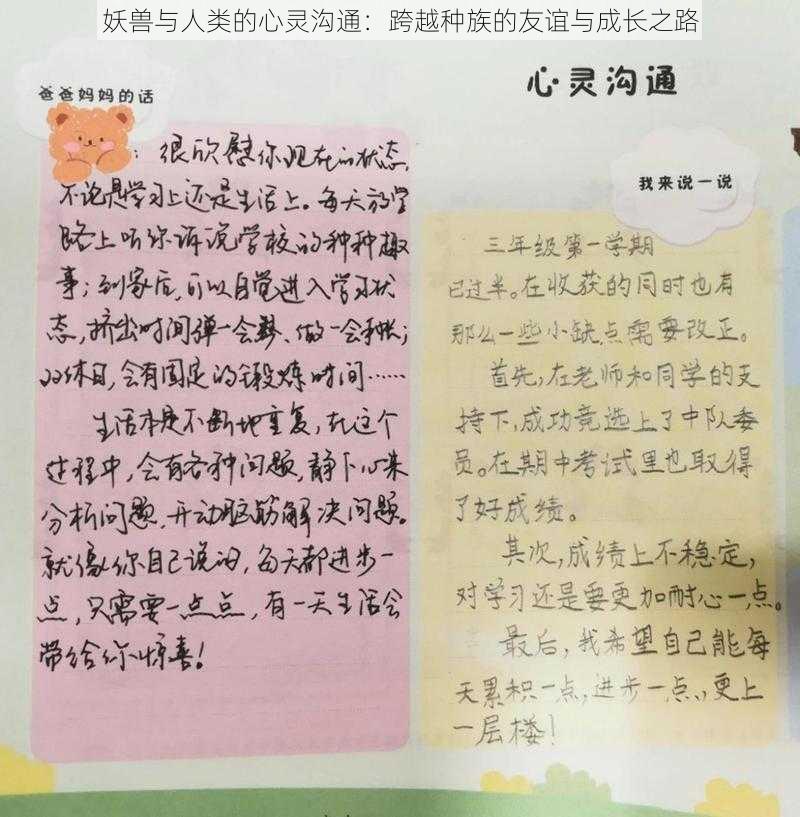 妖兽与人类的心灵沟通：跨越种族的友谊与成长之路
心灵沟通
爸爸妈妈的话
：很欣慰你现在的状态，
不论是学习上还是生活上。每天放学
路上听你诉说学校的种种趣
事；到家后，可以自觉进入学习状
态，挤出时间弹一会琴、做一会手帐；
双休日，会有固定的锻炼时间……
生活本是不断地重复，在这个
过程中，会有各种问题，静下心来
分析问题，开动脑筋解决问题。
就像你自己说的，每天都进步一
点，只需要一点点，有一天生活会
带给你惊喜！
我来说一说
三年级第一学期
已过半。在收获的同时也有
那么一些小缺点需要改正。
首先，在老师和同学的支
持下，成功竞选上了中队委
员。在期中考试里也取得
了好成绩。
其次，成绩上不稳定，
对学习还是要更加耐心一点。
最后，我希望自己能每
天累积一点，进步一点，更上
一层楼！